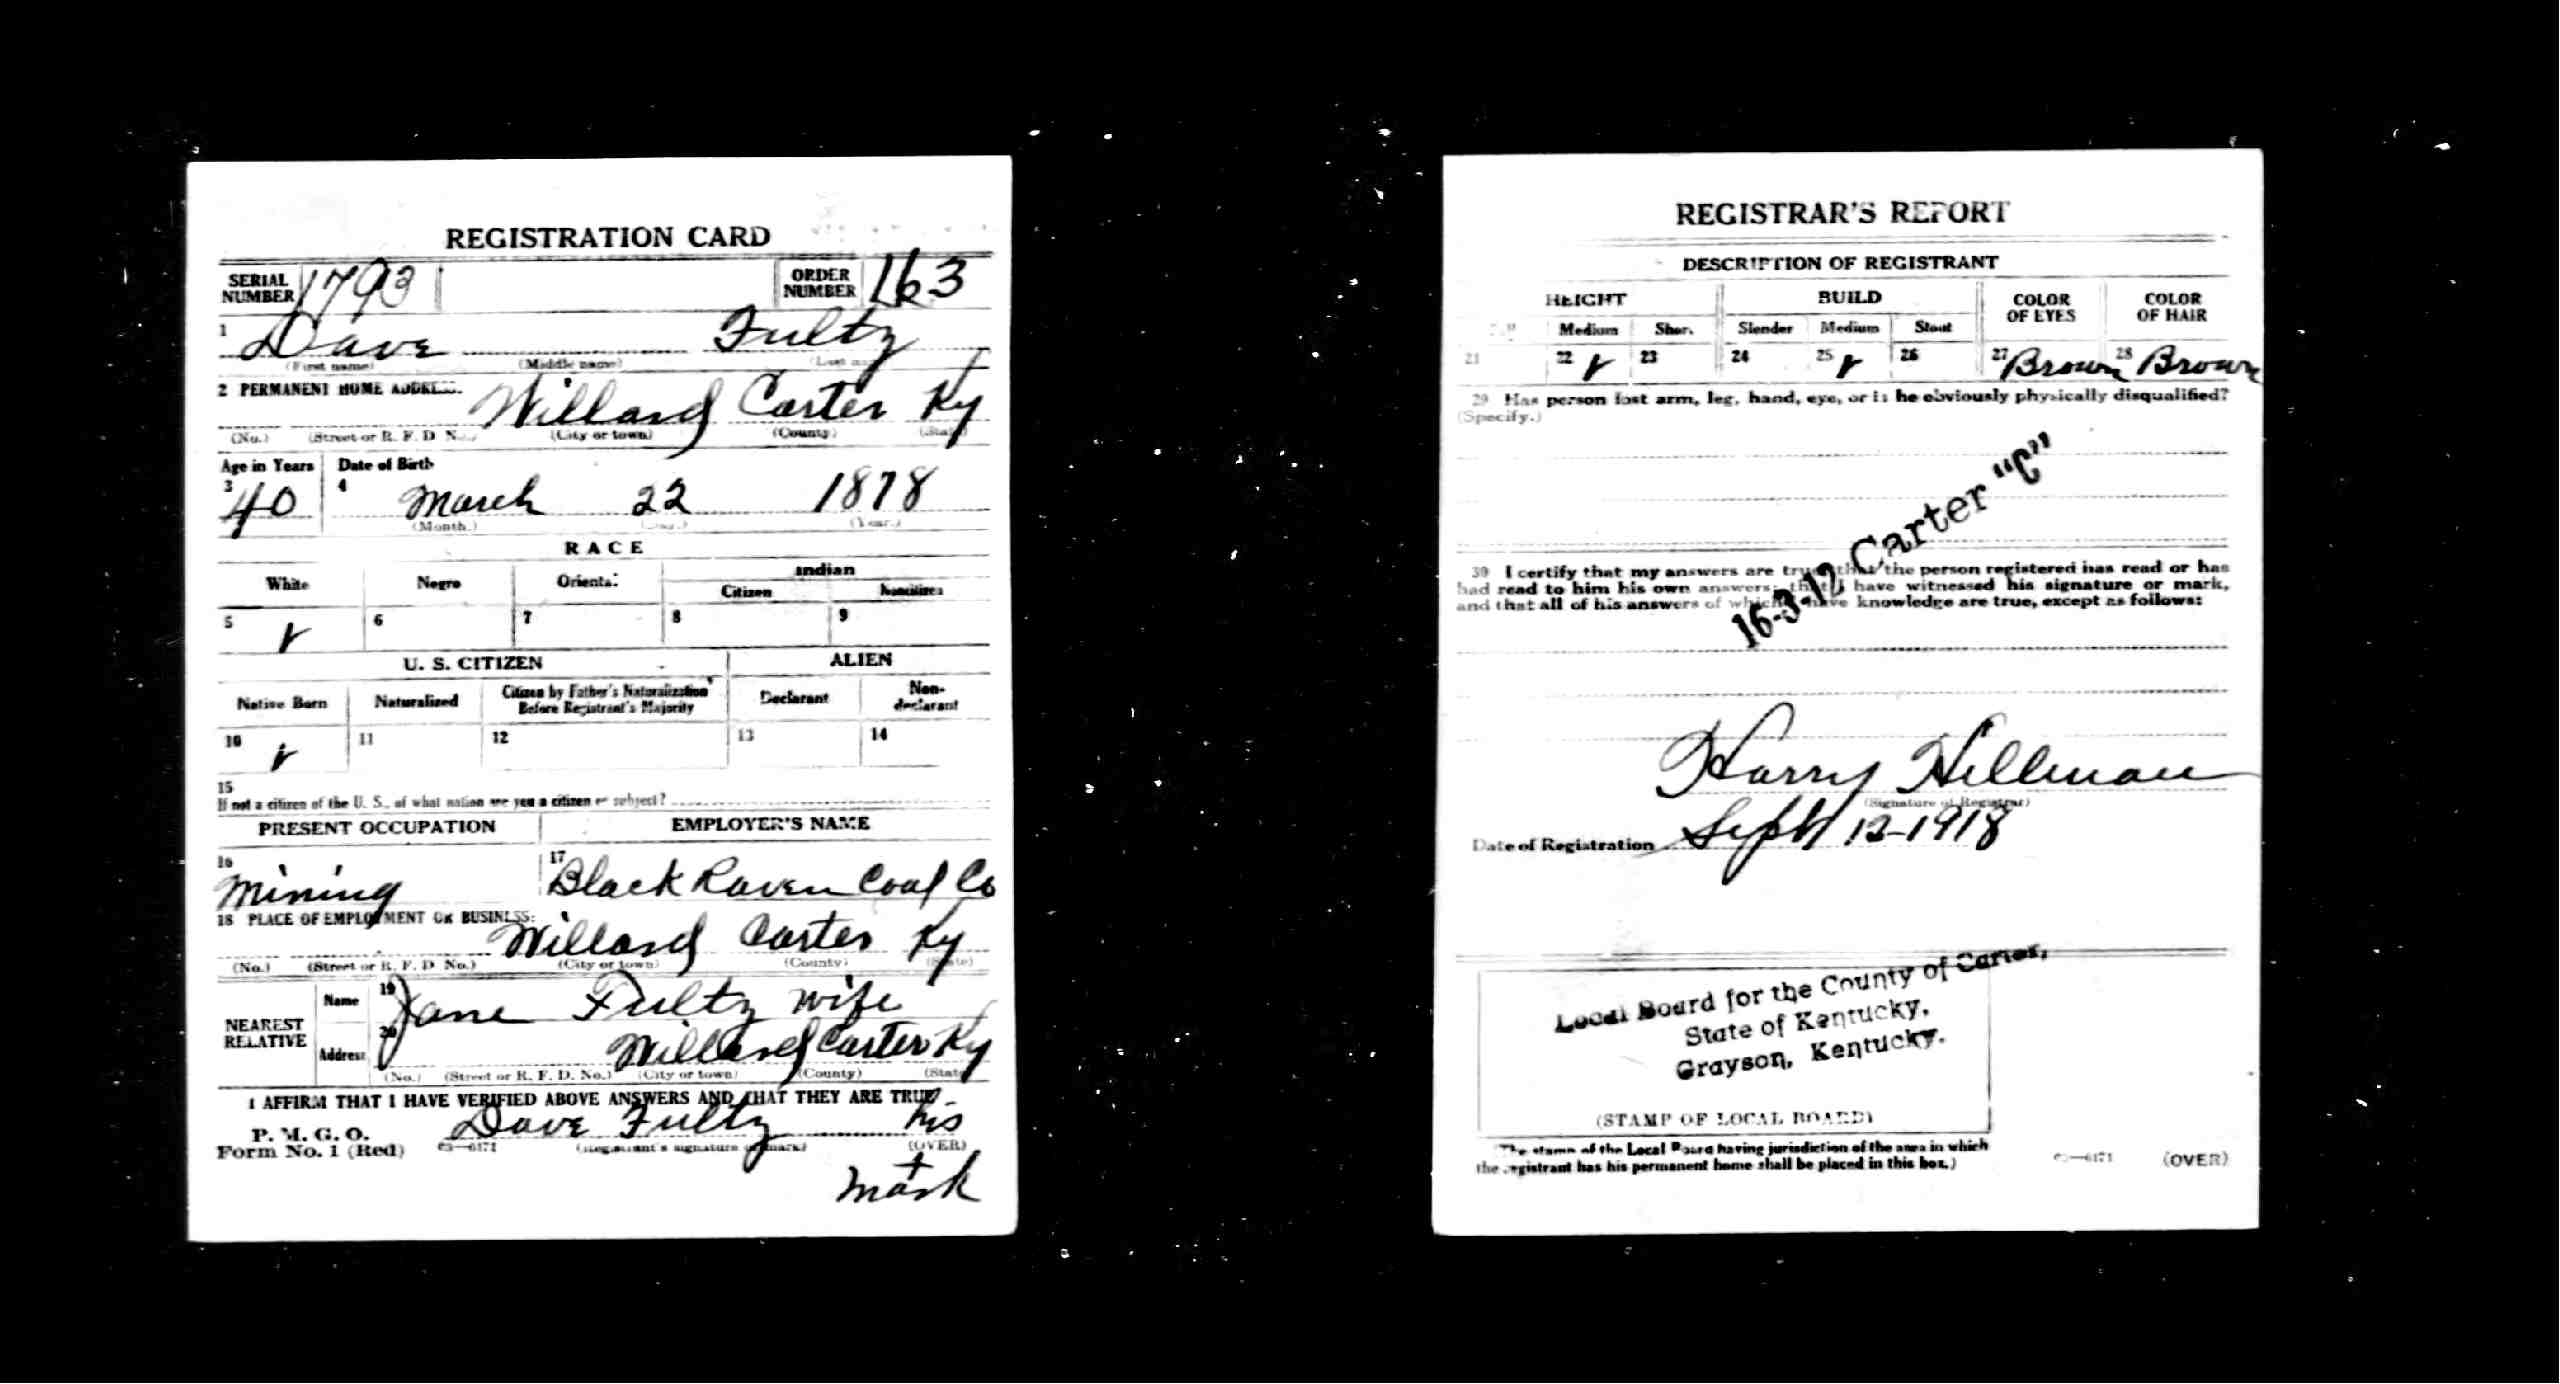 REGISTRATION CARD
SERIAL NUMBER 1793 ORDER NUMBER 163
1 Dave Fultz
(First name) (Middle name) (Last name)
2 PERMANENT HOME ADDRESS:
Willard Carter Ky
(No.) (Street or R. F. D. No.) (City or town) (County) (State)
Age in Years Date of Birth
3 40 4 March 22 1878
(Month.) (Day.) (Year.)
RACE
White Negro Oriental Indian
Citizen Noncitizen
5 ✓ 6 7 8 9
U. S. CITIZEN ALIEN
Native Born Naturalized Citizen by Father's Naturalization Before Registrant's Majority Declarant Non-declarant
10 ✓ 11 12 13 14
15
If not a citizen of the U. S., of what nation are you a citizen or subject?
PRESENT OCCUPATION EMPLOYER'S NAME
16 Mining 17 Black Raven Coal Co
18 PLACE OF EMPLOYMENT OR BUSINESS:
Willard Carter Ky
(No.) (Street or R. F. D. No.) (City or town) (County) (State)
NEAREST RELATIVE
Name 19 Jane Fultz wife
Address 20 Willard Carter Ky
(No.) (Street or R. F. D. No.) (City or town) (County) (State)
I AFFIRM THAT I HAVE VERIFIED ABOVE ANSWERS AND THAT THEY ARE TRUE
P. M. G. O.
Form No. 1 (Red) 03—6171 Dave Fultz his
(Registrant's signature or mark) (OVER)
+
mark
REGISTRAR'S REPORT
DESCRIPTION OF REGISTRANT
HEIGHT BUILD COLOR OF EYES COLOR OF HAIR
Medium Short Slender Medium Stout
21 22 ✓ 23 24 25 ✓ 26 27 Brown 28 Brown
29 Has person lost arm, leg, hand, eye, or is he obviously physically disqualified?
(Specify.)
16-3-12 Carter "C"
30 I certify that my answers are true; that the person registered has read or has
had read to him his own answers; that I have witnessed his signature or mark,
and that all of his answers of which I have knowledge are true, except as follows:
Harry Hillman
(Signature of Registrar)
Date of Registration Sept 12-1918
Local Board for the County of Carter,
State of Kentucky,
Grayson, Kentucky.
(STAMP OF LOCAL BOARD)
(The stamp of the Local Board having jurisdiction of the area in which
the registrant has his permanent home shall be placed in this box.)
03—6171 (OVER)